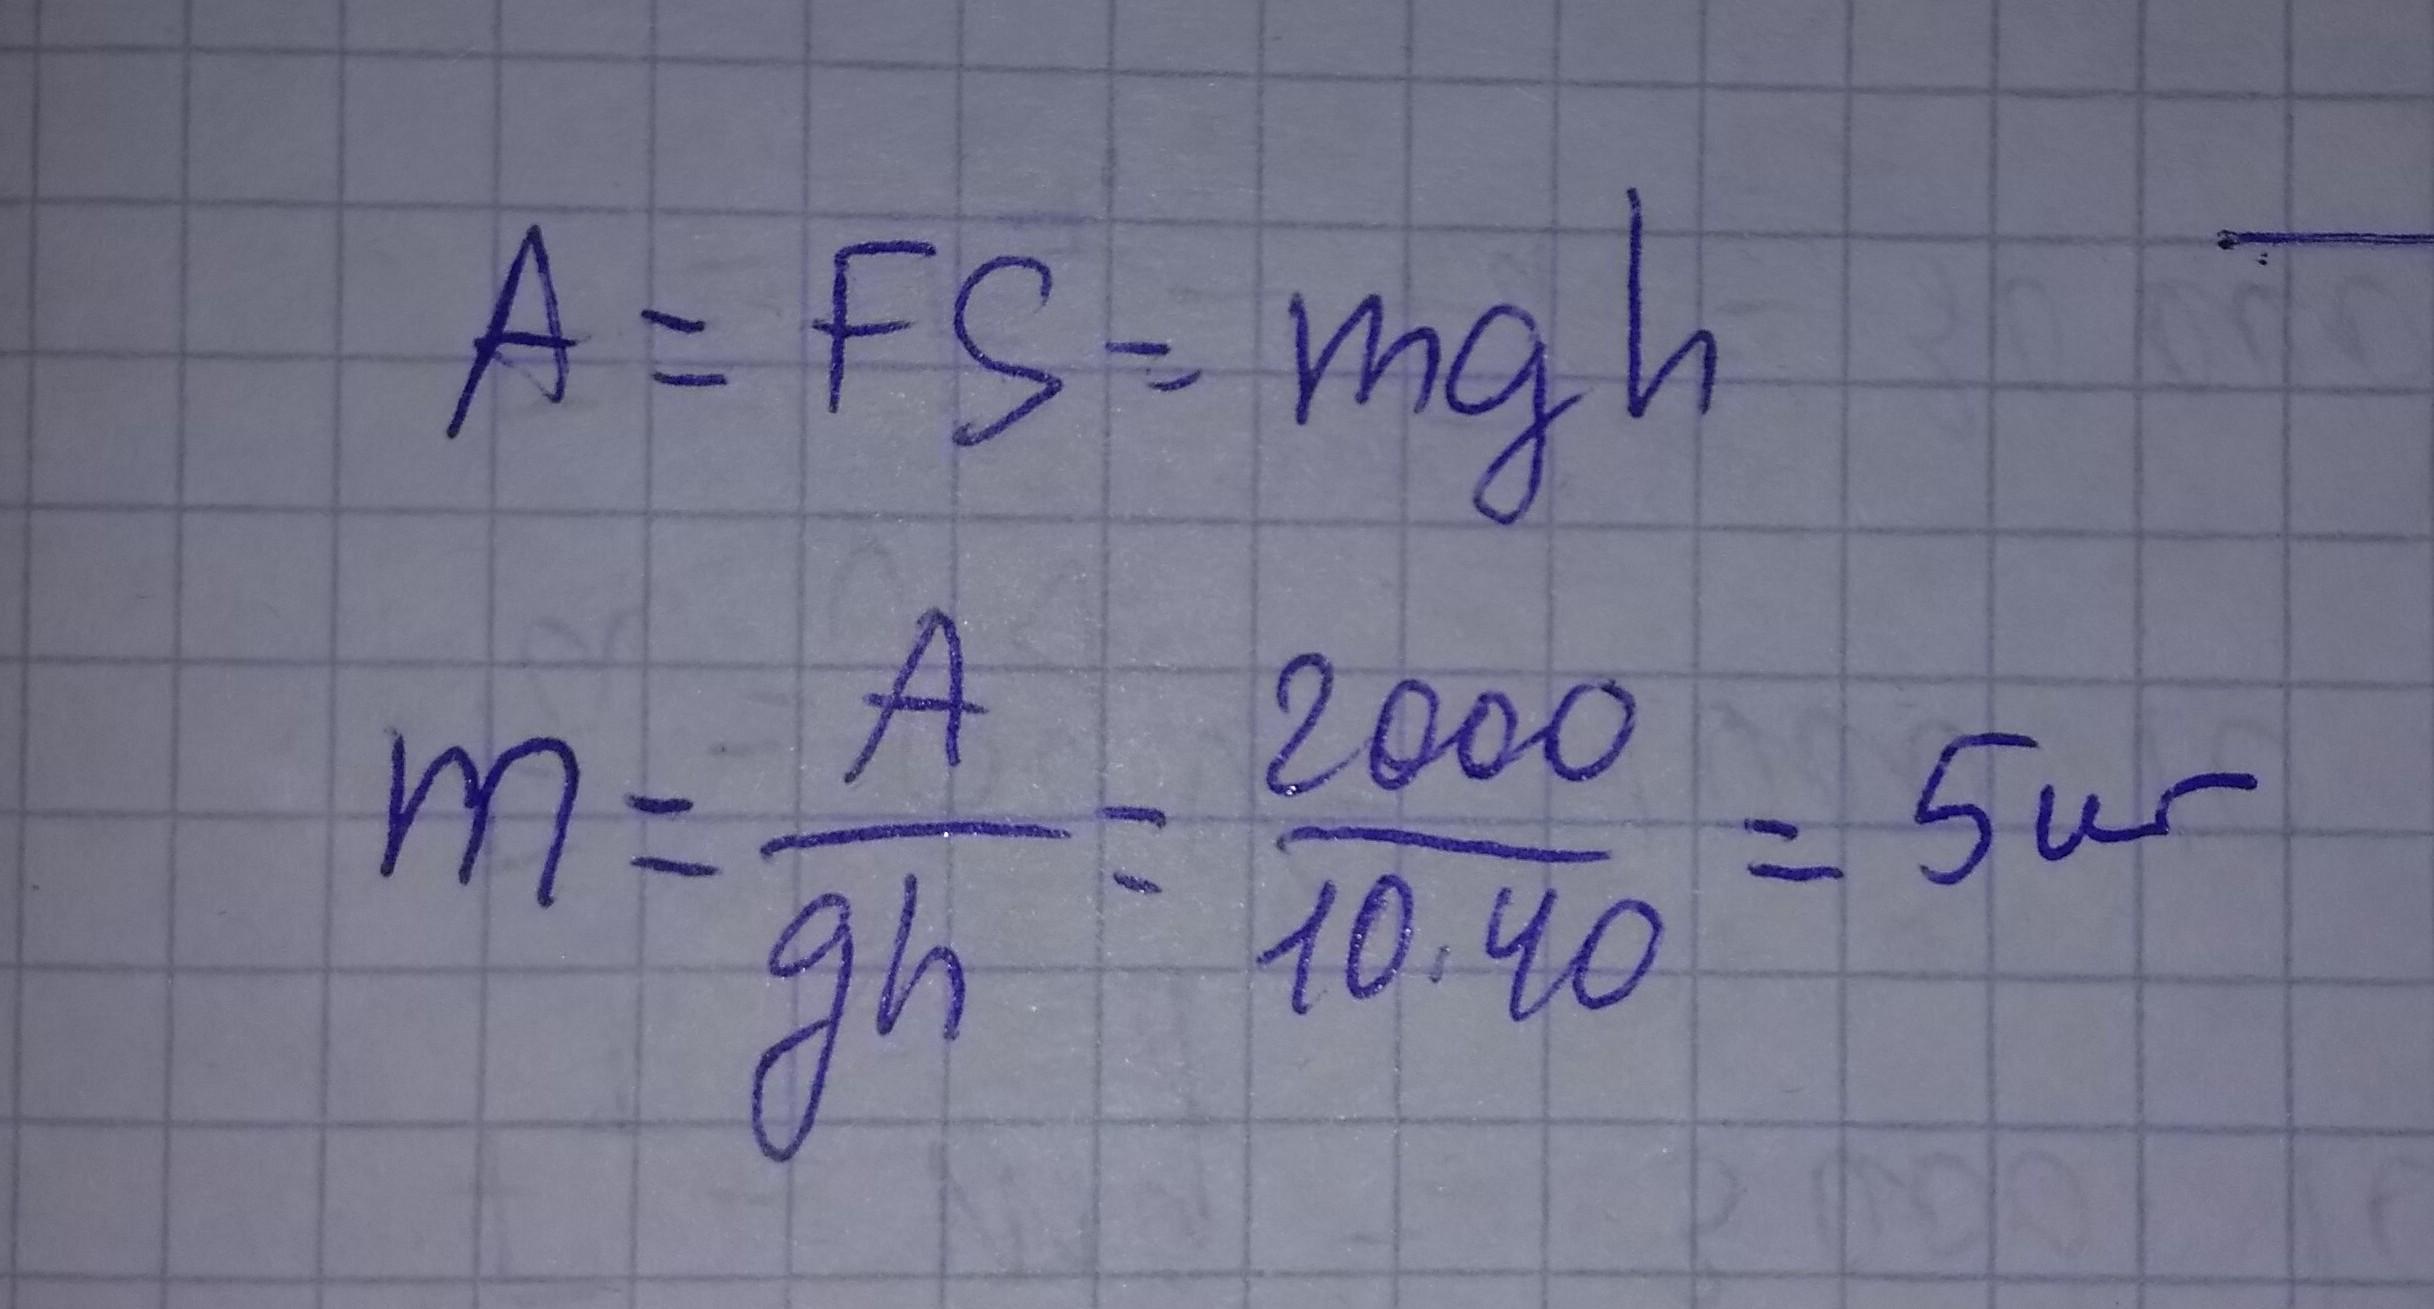 A = FS = mgh
m = A/gh = 2000/10·40 = 5 кг